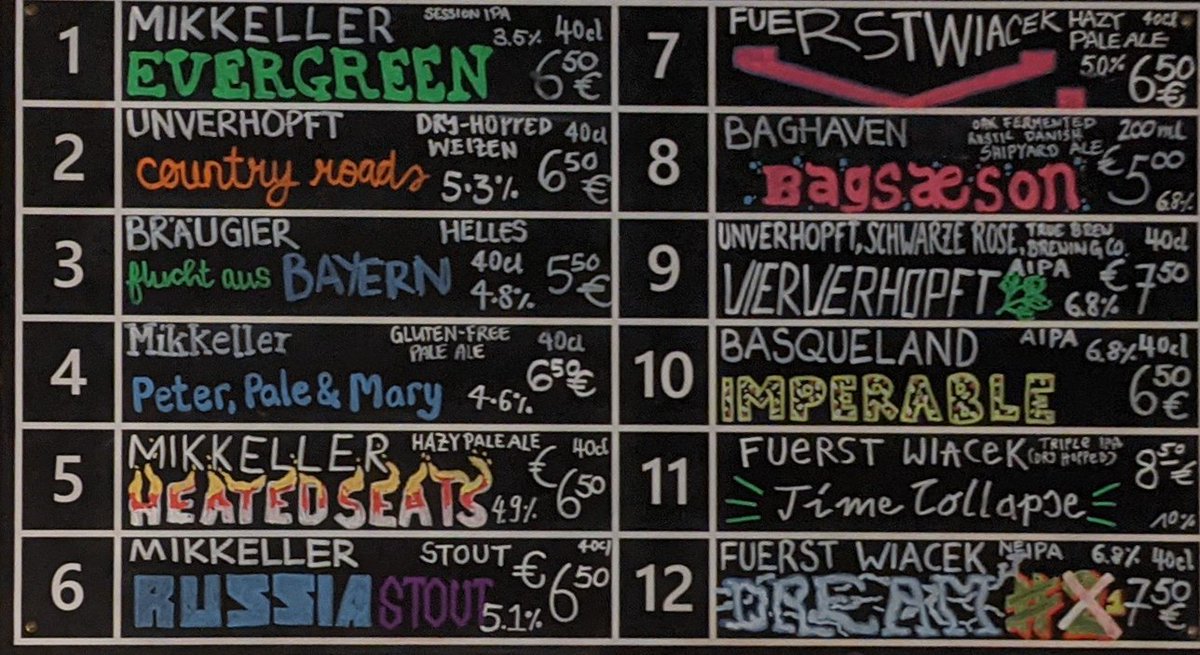 1
MIKKELLER SESSION IPA 3.5% 40cl
EVERGREEN 6⁵⁰ €
2
UNVERHOPFT DRY-HOPPED WEIZEN 40cl
country roads 5.3% 6⁵⁰ €
3
BRÄUGIER HELLES
flucht aus BAYERN 40cl 4.8% 5⁵⁰ €
4
Mikkeller GLUTEN-FREE PALE ALE 40cl
Peter, Pale & Mary 4.6% 6⁵⁰ €
5
MIKKELLER HAZY PALE ALE 40cl
HEATED SEATS 4.9% € 6⁵⁰
6
MIKKELLER STOUT 40cl
RUSSIA STOUT 5.1% € 6⁵⁰
7
FUERST WIACEK HAZY PALE ALE 40cl
5.0% 6⁵⁰ €
8
BAGHAVEN OAK FERMENTED RUSTIC DANISH SHIPYARD ALE 200ml
Bagsæson € 5⁰⁰ 6.8%
9
UNVERHOPFT, SCHWARZE ROSE, TRUE BREW BREWING CO. 40cl
VIERVERHOPFT AIPA 6.8% € 7⁵⁰
10
BASQUELAND AIPA 6.8% 40cl
IMPERABLE 6⁵⁰ €
11
FUERST WIACEK TRIPLE IPA (DRY HOPPED) 8⁵⁰ €
Time Collapse 10%
12
FUERST WIACEK NEIPA 6.8% 40cl
DREAM #X1 7⁵⁰ €